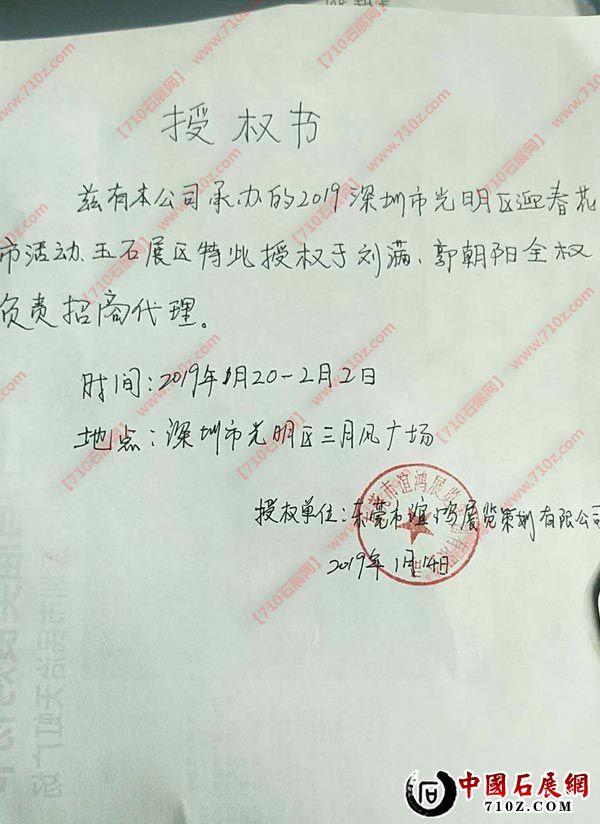 授权书
兹有本公司承办的2019深圳市光明区迎春花
市活动、玉石展区特此授权于刘满、郭朝阳全权
负责招商代理。
时间:2019年1月20-2月2日
地点:深圳市光明区三月风广场
授权单位:东莞市谊鸿展览策划有限公司
2019年1月14日
【710石展网】www.710z.com
中國石展網
710Z.COM